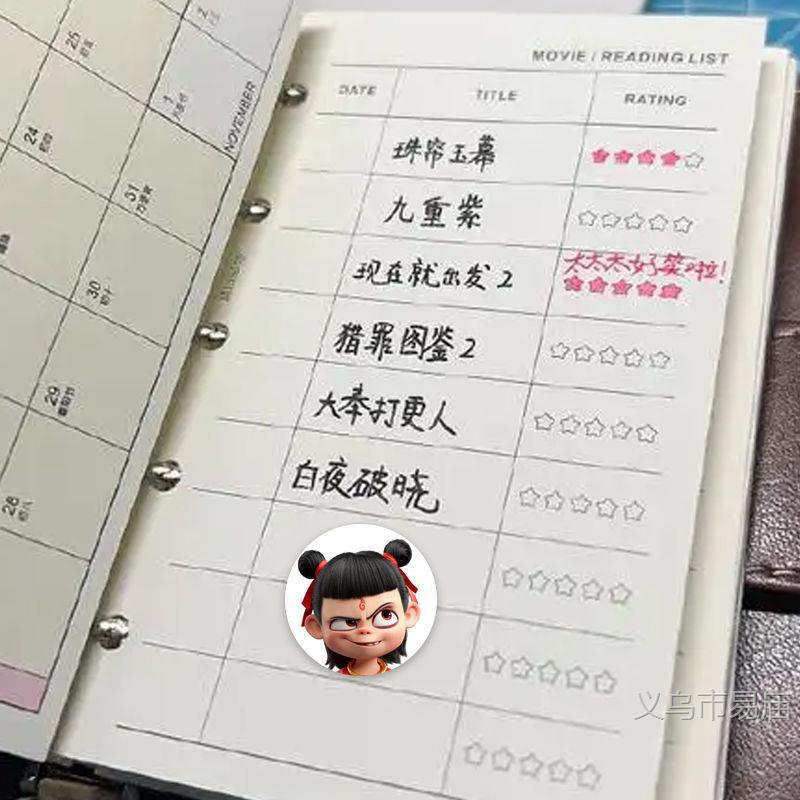 MOVIE / READING LIST
DATE TITLE RATING
珠帘玉幕
九重紫
现在就出发2 太太太好笑啦!
猎罪图鉴2
大奉打更人
白夜破晓
NOVEMBER
25
24
31
30
29
28
1
2
义乌市易庙